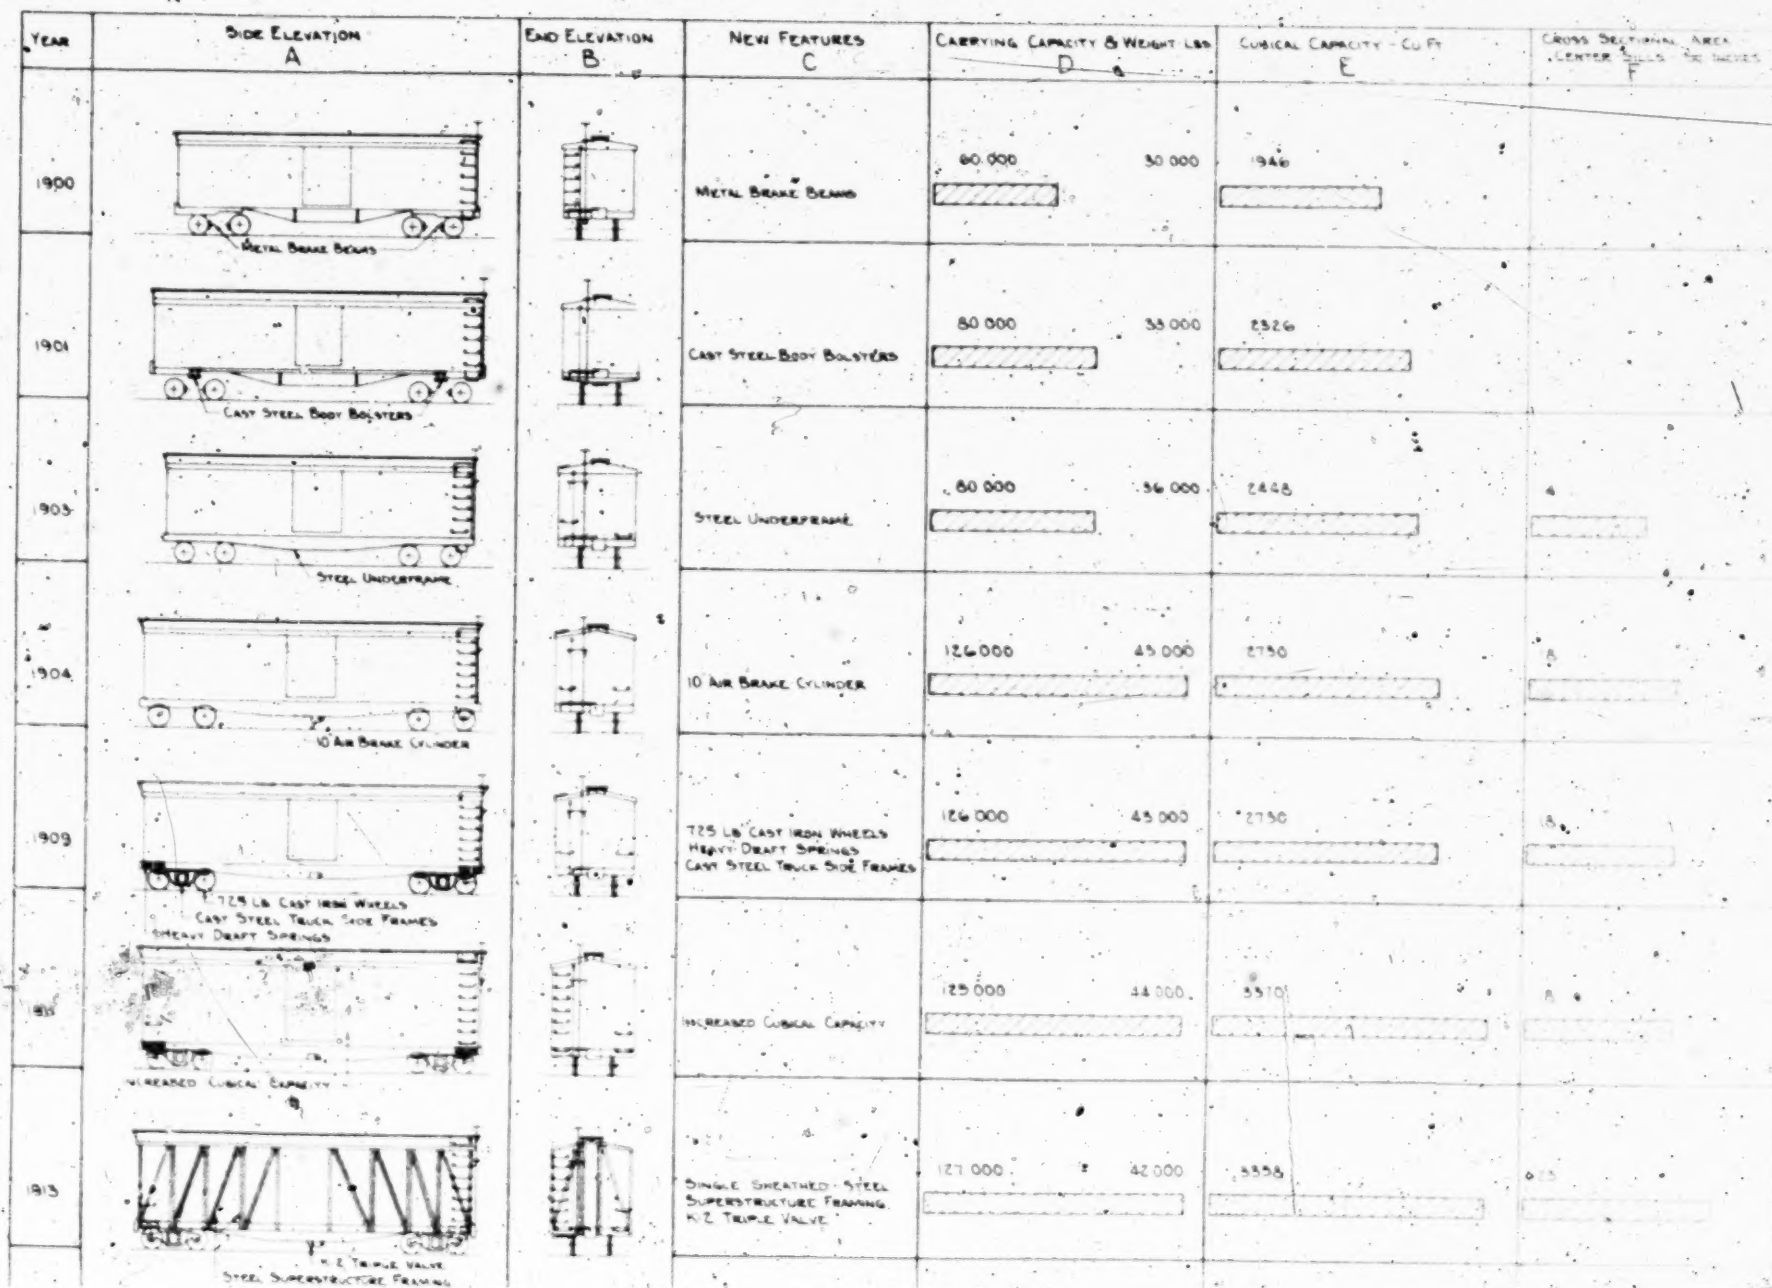 YEAR
SIDE ELEVATION
A
END ELEVATION
B
NEW FEATURES
C
CARRYING CAPACITY & WEIGHT-LBS
D
CUBICAL CAPACITY - CU FT
E
CROSS SECTIONAL AREA
CENTER SILLS - SQ INCHES
F
1900
METAL BRAKE BEAMS
METAL BRAKE BEAMS
60.000 30 000
1946
1901
CAST STEEL BODY BOLSTERS
CAST STEEL BODY BOLSTERS
80 000 33 000
2326
1903
STEEL UNDERFRAME
STEEL UNDERFRAME
80 000 36 000
2448
1904
10" AIR BRAKE CYLINDER
10" AIR BRAKE CYLINDER
126000 43 000
2730
18
1909
725 LB CAST IRON WHEELS
CAST STEEL TRUCK SIDE FRAMES
HEAVY DRAFT SPRINGS
725 LB CAST IRON WHEELS
HEAVY DRAFT SPRINGS
CAST STEEL TRUCK SIDE FRAMES
126 000 43 000
2730
18
INCREASED CUBICAL CAPACITY
INCREASED CUBICAL CAPACITY
125 000 44 000
3370
18
1913
K-2 TRIPLE VALVE
STEEL SUPERSTRUCTURE FRAMING
SINGLE SHEATHED - STEEL
SUPERSTRUCTURE FRAMING
K-2 TRIPLE VALVE
127 000 42000
3358